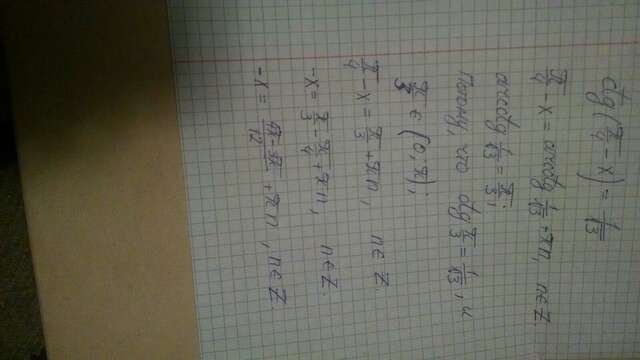 ctg(π/4 - x) = 1/√3
π/4 - x = arcctg 1/√3 + πn, n∈Z
arcctg 1/√3 = π/3,
Потому, что ctg π/3 = 1/√3, и
π/3 ∈ (0; π);
π/4 - x = π/3 + πn, n∈Z.
-x = π/3 - π/4 + πn, n∈Z.
-x = (4π - 3π)/12 + πn, n∈Z.